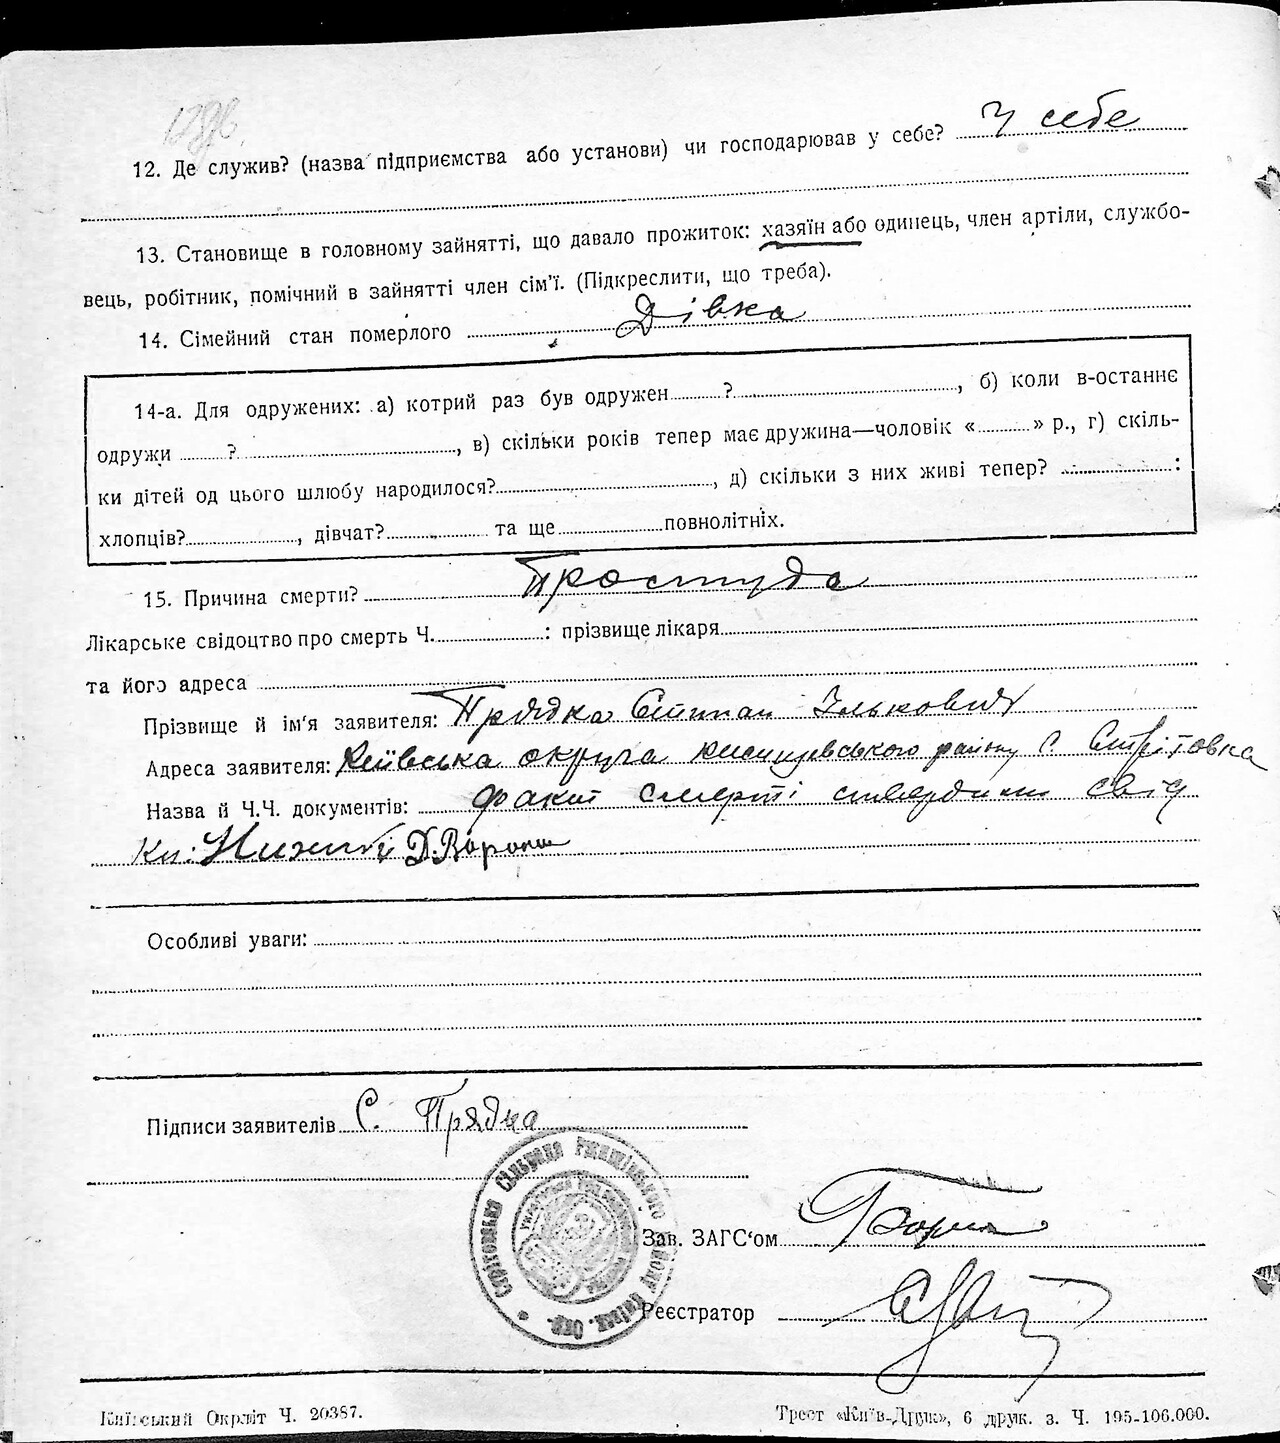 12. Де служив? (назва підприємства або установи) чи господарював у себе? У себе
13. Становище в головному зайнятті, що давало прожиток: хазяїн або одинець, член артіли, службо-
вець, робітник, помічний в зайнятті член сім'ї. (Підкреслити, що треба).
14. Сімейний стан померлого Дівка
14-а. Для одружених: а) котрий раз був одружен ? , б) коли в-останнє
одружи ? , в) скільки років тепер має дружина—чоловік « » р., г) скіль-
ки дітей од цього шлюбу народилося? , д) скільки з них живі тепер? :
хлопців? , дівчат? та ще повнолітніх.
15. Причина смерти? Простуда
Лікарське свідоцтво про смерть Ч. : прізвище лікаря
та його адреса
Прізвище й ім'я заявителя: Прядка Степан Ількович
Адреса заявителя: Київська округа району с. Стрітовка
Назва й Ч.Ч. документів: факт смерті ствердили свід
Д. Ворона
Особливі уваги:
Підписи заявителів С. Прядка
Зав. ЗАГС'ом
Реєстратор
Київський Окрліт Ч. 20387.
Трест «Київ-Друк», 6 друк. з. Ч. 195-106.000.